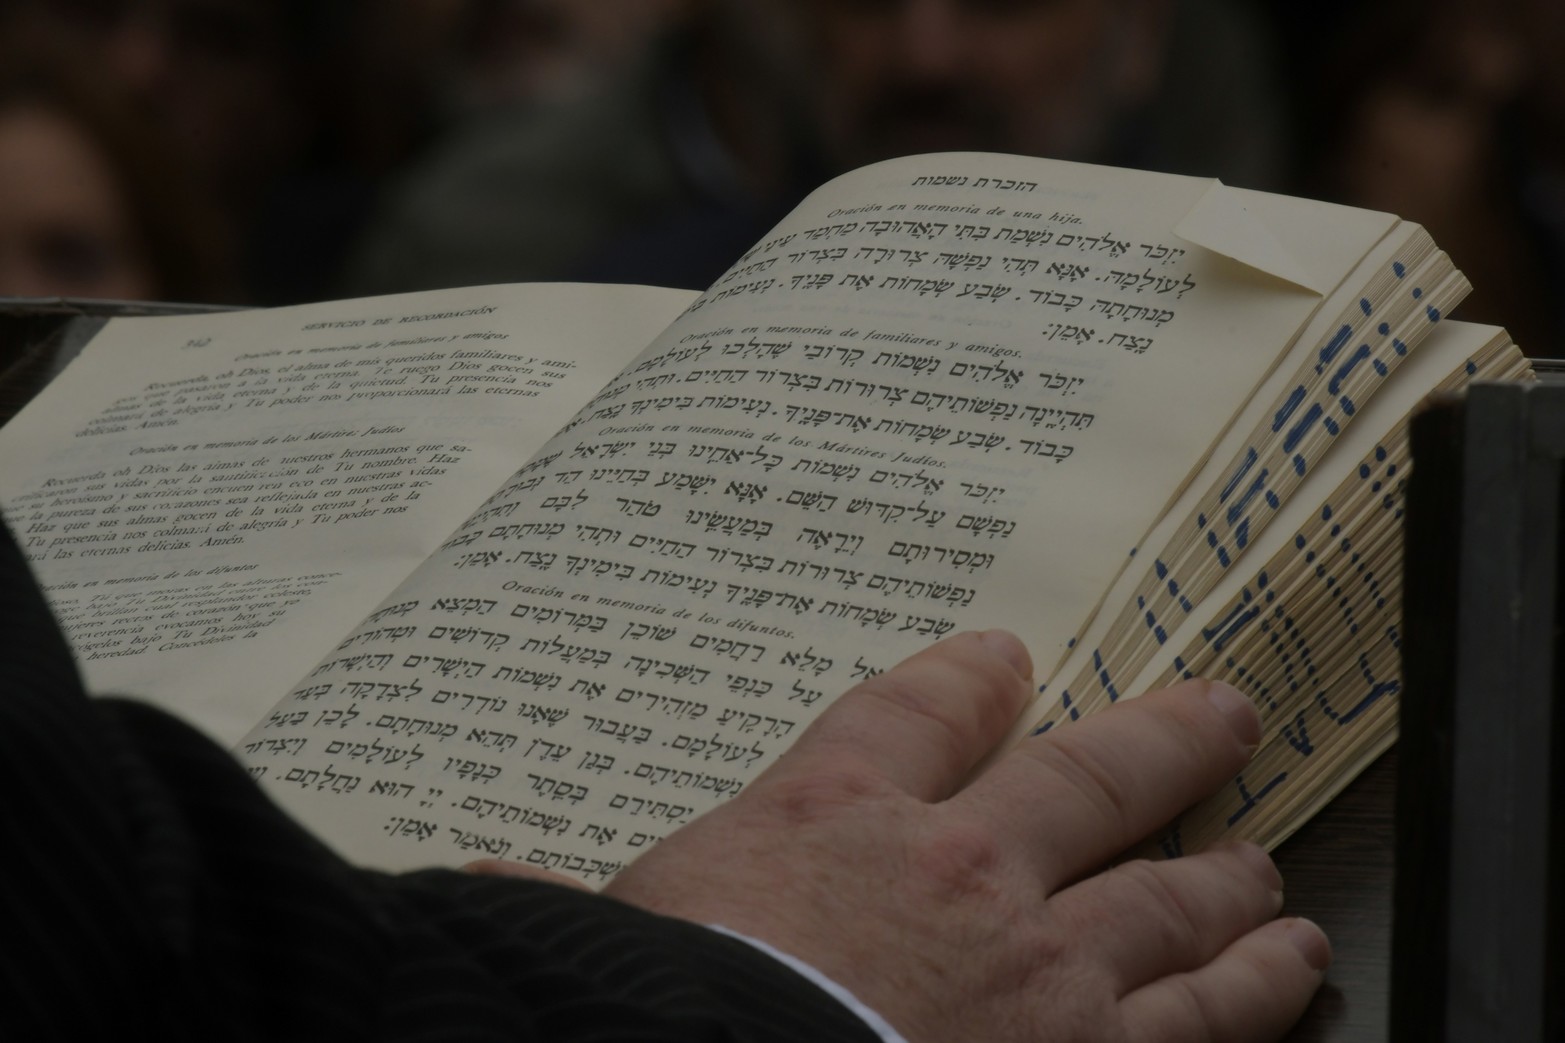 SERVICIO DE RECORDACIÓN
Oración en memoria de familiares y amigos
Recuerda, oh Dios, el alma de mis queridos familiares y ami-
gos que pasaron a la vida eterna. Te ruego Dios gocen sus
almas de la vida eterna y de la quietud. Tu presencia nos
colmará de alegría y Tu poder nos proporcionará las eternas
delicias. Amén.
Oración en memoria de los Mártires Judíos
Recuerda oh Dios las almas de nuestros hermanos que sa-
crificaron sus vidas por la santificación de Tu nombre. Haz
que su heroísmo y sacrificio encuentren eco en nuestras vidas
y la pureza de sus corazones sea reflejada en nuestras ac-
Haz que sus almas gocen de la vida eterna y de la
Tu presencia nos colmará de alegría y Tu poder nos
las eternas delicias. Amén.
en memoria de los difuntos
Tú que moras en las alturas
bajo Tu Divinidad
brillan cual resplandor celeste,
rectas de corazón que
reverencia evocamos hoy su
bajo Tu Divinidad
heredad. Concédeles la
הזכרת נשמות
Oración en memoria de una hija.
יִזְכֹּר אֱלֹהִים נִשְׁמַת בִּתִּי הָאֲהוּבָה מַחְמַד עֵינַי
לְעוֹלָמָהּ. אָנָּא תְּהִי נַפְשָׁהּ צְרוּרָה בִּצְרוֹר הַחַיִּים
מְנוּחָתָהּ כָּבוֹד. שֹׂבַע שְׂמָחוֹת אֶת פָּנֶיךָ. נְעִימוֹת
נֶצַח. אָמֵן:
Oración en memoria de familiares y amigos.
יִזְכֹּר אֱלֹהִים נִשְׁמוֹת קְרוֹבַי שֶׁהָלְכוּ לְעוֹלָמָם.
תִּהְיֶינָה נַפְשׁוֹתֵיהֶם צְרוּרוֹת בִּצְרוֹר הַחַיִּים. וּתְהִי
כָּבוֹד. שֹׂבַע שְׂמָחוֹת אֶת־פָּנֶיךָ. נְעִימוֹת בִּימִינְךָ נֶצַח.
Oración en memoria de los Mártires Judíos.
יִזְכֹּר אֱלֹהִים נִשְׁמוֹת כָּל־אַחֵינוּ בְּנֵי יִשְׂרָאֵל
נַפְשָׁם עַל־קִדּוּשׁ הַשֵּׁם. אָנָּא יִשָּׁמַע בְּחַיֵּינוּ הֵד
וּמְסִירוּתָם וְיֵרָאֶה בְּמַעֲשֵׂינוּ טֹהַר לִבָּם
נַפְשׁוֹתֵיהֶם צְרוּרוֹת בִּצְרוֹר הַחַיִּים וּתְהִי מְנוּחָתָם
שֹׂבַע שְׂמָחוֹת אֶת־פָּנֶיךָ נְעִימוֹת בִּימִינְךָ נֶצַח. אָמֵן:
Oración en memoria de los difuntos.
אֵל מָלֵא רַחֲמִים שׁוֹכֵן בַּמְּרוֹמִים הַמְצֵא
עַל כַּנְפֵי הַשְּׁכִינָה בְּמַעֲלוֹת קְדוֹשִׁים וּטְהוֹרִים
הָרָקִיעַ מַזְהִירִים אֶת נִשְׁמוֹת הַיְשָׁרִים וְהַיְשָׁרוֹת
לְעוֹלָמָם. בַּעֲבוּר שֶׁאָנוּ נוֹדְרִים לִצְדָקָה בְּעַד
נִשְׁמוֹתֵיהֶם. בְּגַן עֵדֶן תְּהֵא מְנוּחָתָם. לָכֵן בַּעַל
יַסְתִּירֵם בְּסֵתֶר כְּנָפָיו לְעוֹלָמִים וְיִצְרוֹר
אֶת נִשְׁמוֹתֵיהֶם. יְיָ הוּא נַחֲלָתָם.
וְנֹאמַר אָמֵן: